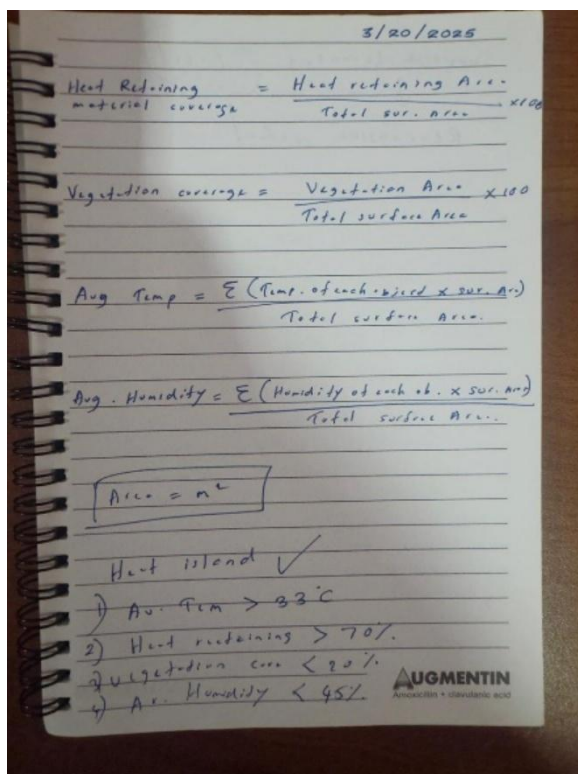 3/20/2025
Heat Retaining = Heat retaining Area
material coverage Total sur. Area x100
Vegetation coverage = Vegetation Area x100
Total surface Area
Avg Temp = Σ (Temp. of each object x sur. Are)
Total surface Area.
Avg. Humidity = Σ (Humidity of each ob. x sur. Area)
Total surface Area.
Area = m²
Heat island ✓
1) Av. Tem > 33°C
2) Heat reetaining > 70%.
3) Vegetation cove < 20%.
4) Av. Humidity < 45%.
AUGMENTIN
Amoxicillin + clavulanic acid